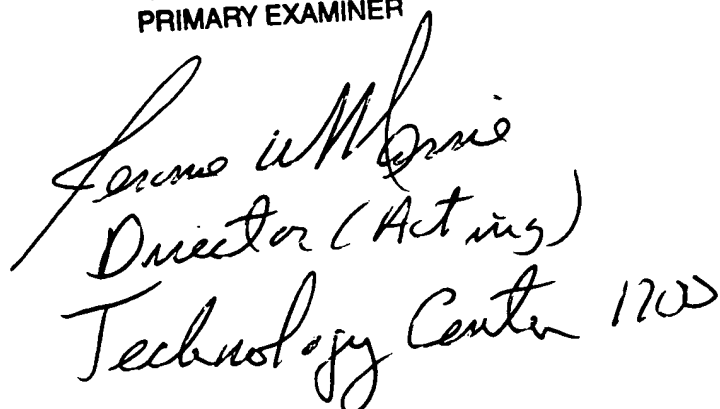 PRIMARY EXAMINER
Jerome W Massie
Director (Acting)
Technology Center 1700